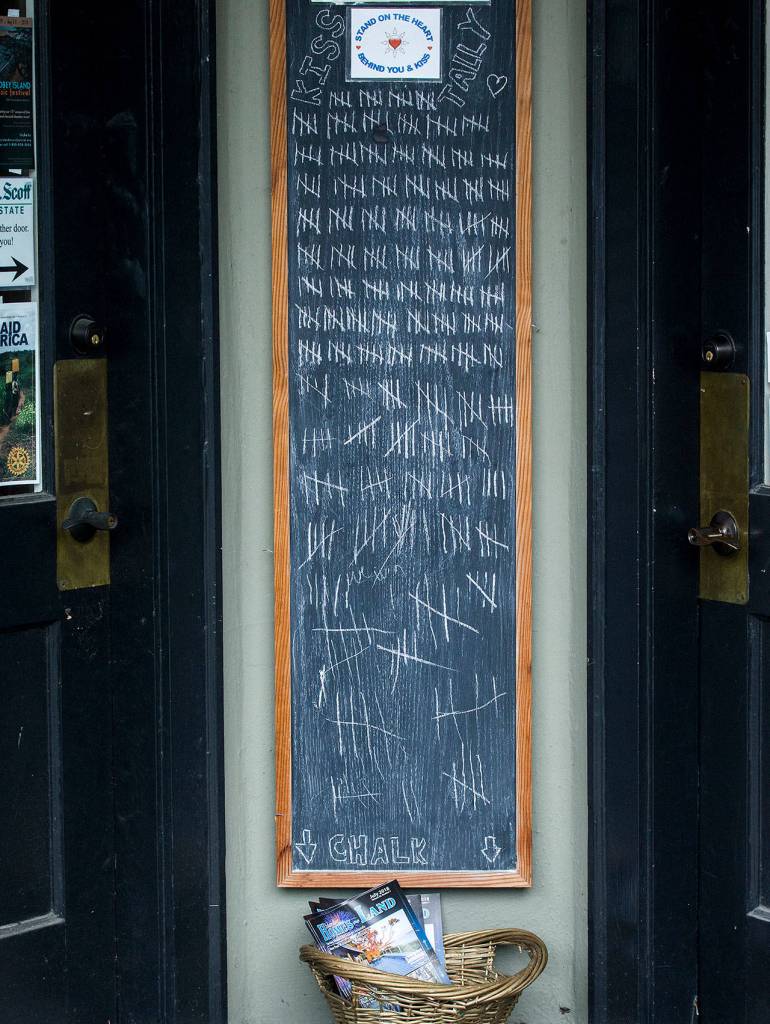 KISS
STAND ON THE HEART
BEHIND YOU & KISS
TALLY
CHALK
. Scott
STATE
ther door.
you!
AID
RICA
July 2018
LAND